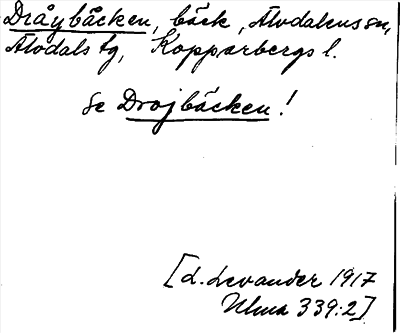 Dråybäcken, bäck, Älvdalens sn,
Älvdals tg, Kopparbergs l.
se Drojbäcken!
[L. Levander 1917
Ulma 339:2]